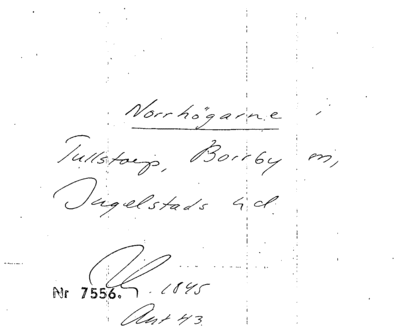 Norrhögarne i
Tullstorp, Borrby m,
Ingelstads hd.
1845
Nr 7556.
Ant 43.